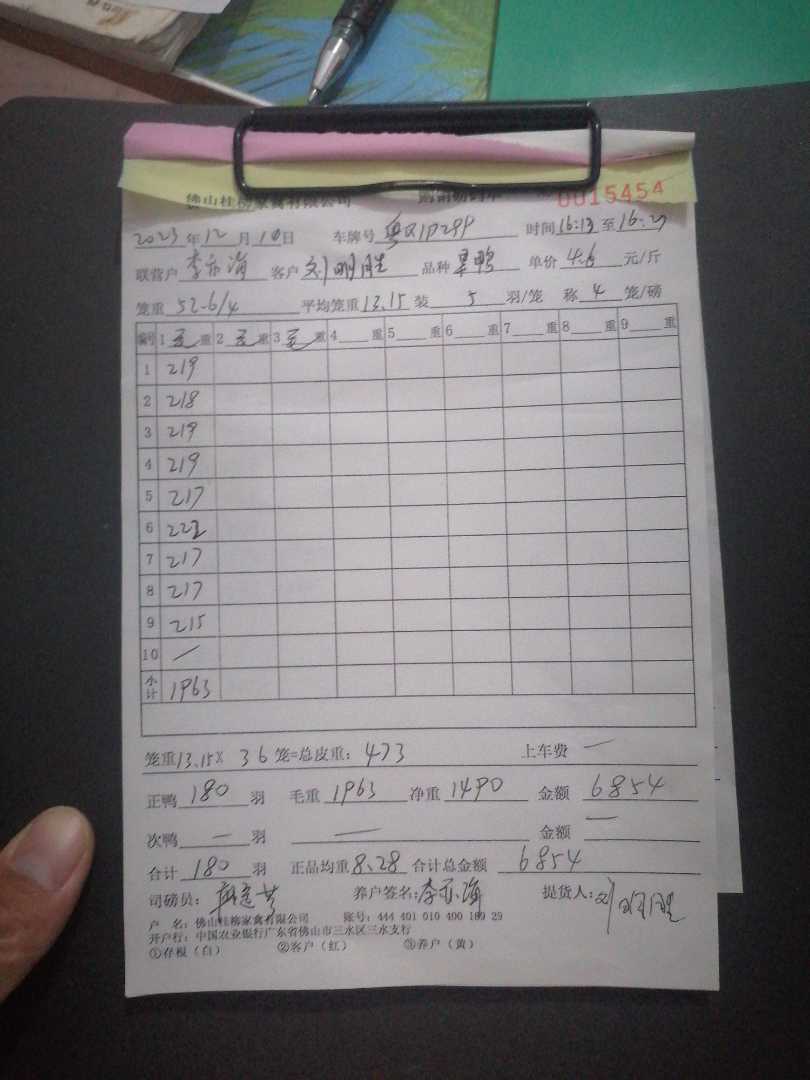 佛山桂柳家禽有限公司 0015454
2023年12月10日 车牌号 粤Q1P299 时间16:13至16:27
联营户 李亦海 客户 刘明胜 品种 单价 4.6 元/斤
笼重 52.6/4 平均笼重 13.15 装 5 羽/笼 称 4 笼/磅
编号 1 毛 重 2 毛 重 3 毛 重 4 重 5 重 6 重 7 重 8 重 9 重
1 219
2 218
3 219
4 219
5 217
6 222
7 217
8 217
9 215
10 —
小计 1963
笼重13.15× 36 笼=总皮重: 473 上车费 —
正鸭 180 羽 毛重 1963 净重 1490 金额 6854
次鸭 — 羽 — 金额 —
合计 180 羽 正品均重8.28 合计总金额 6854
司磅员: 养户签名:李亦海 提货人:刘明胜
户 名: 佛山桂柳家禽有限公司 账号: 444 401 010 400 189 29
开户行: 中国农业银行广东省佛山市三水区三水支行
①存根（白） ②客户（红） ③养户（黄）